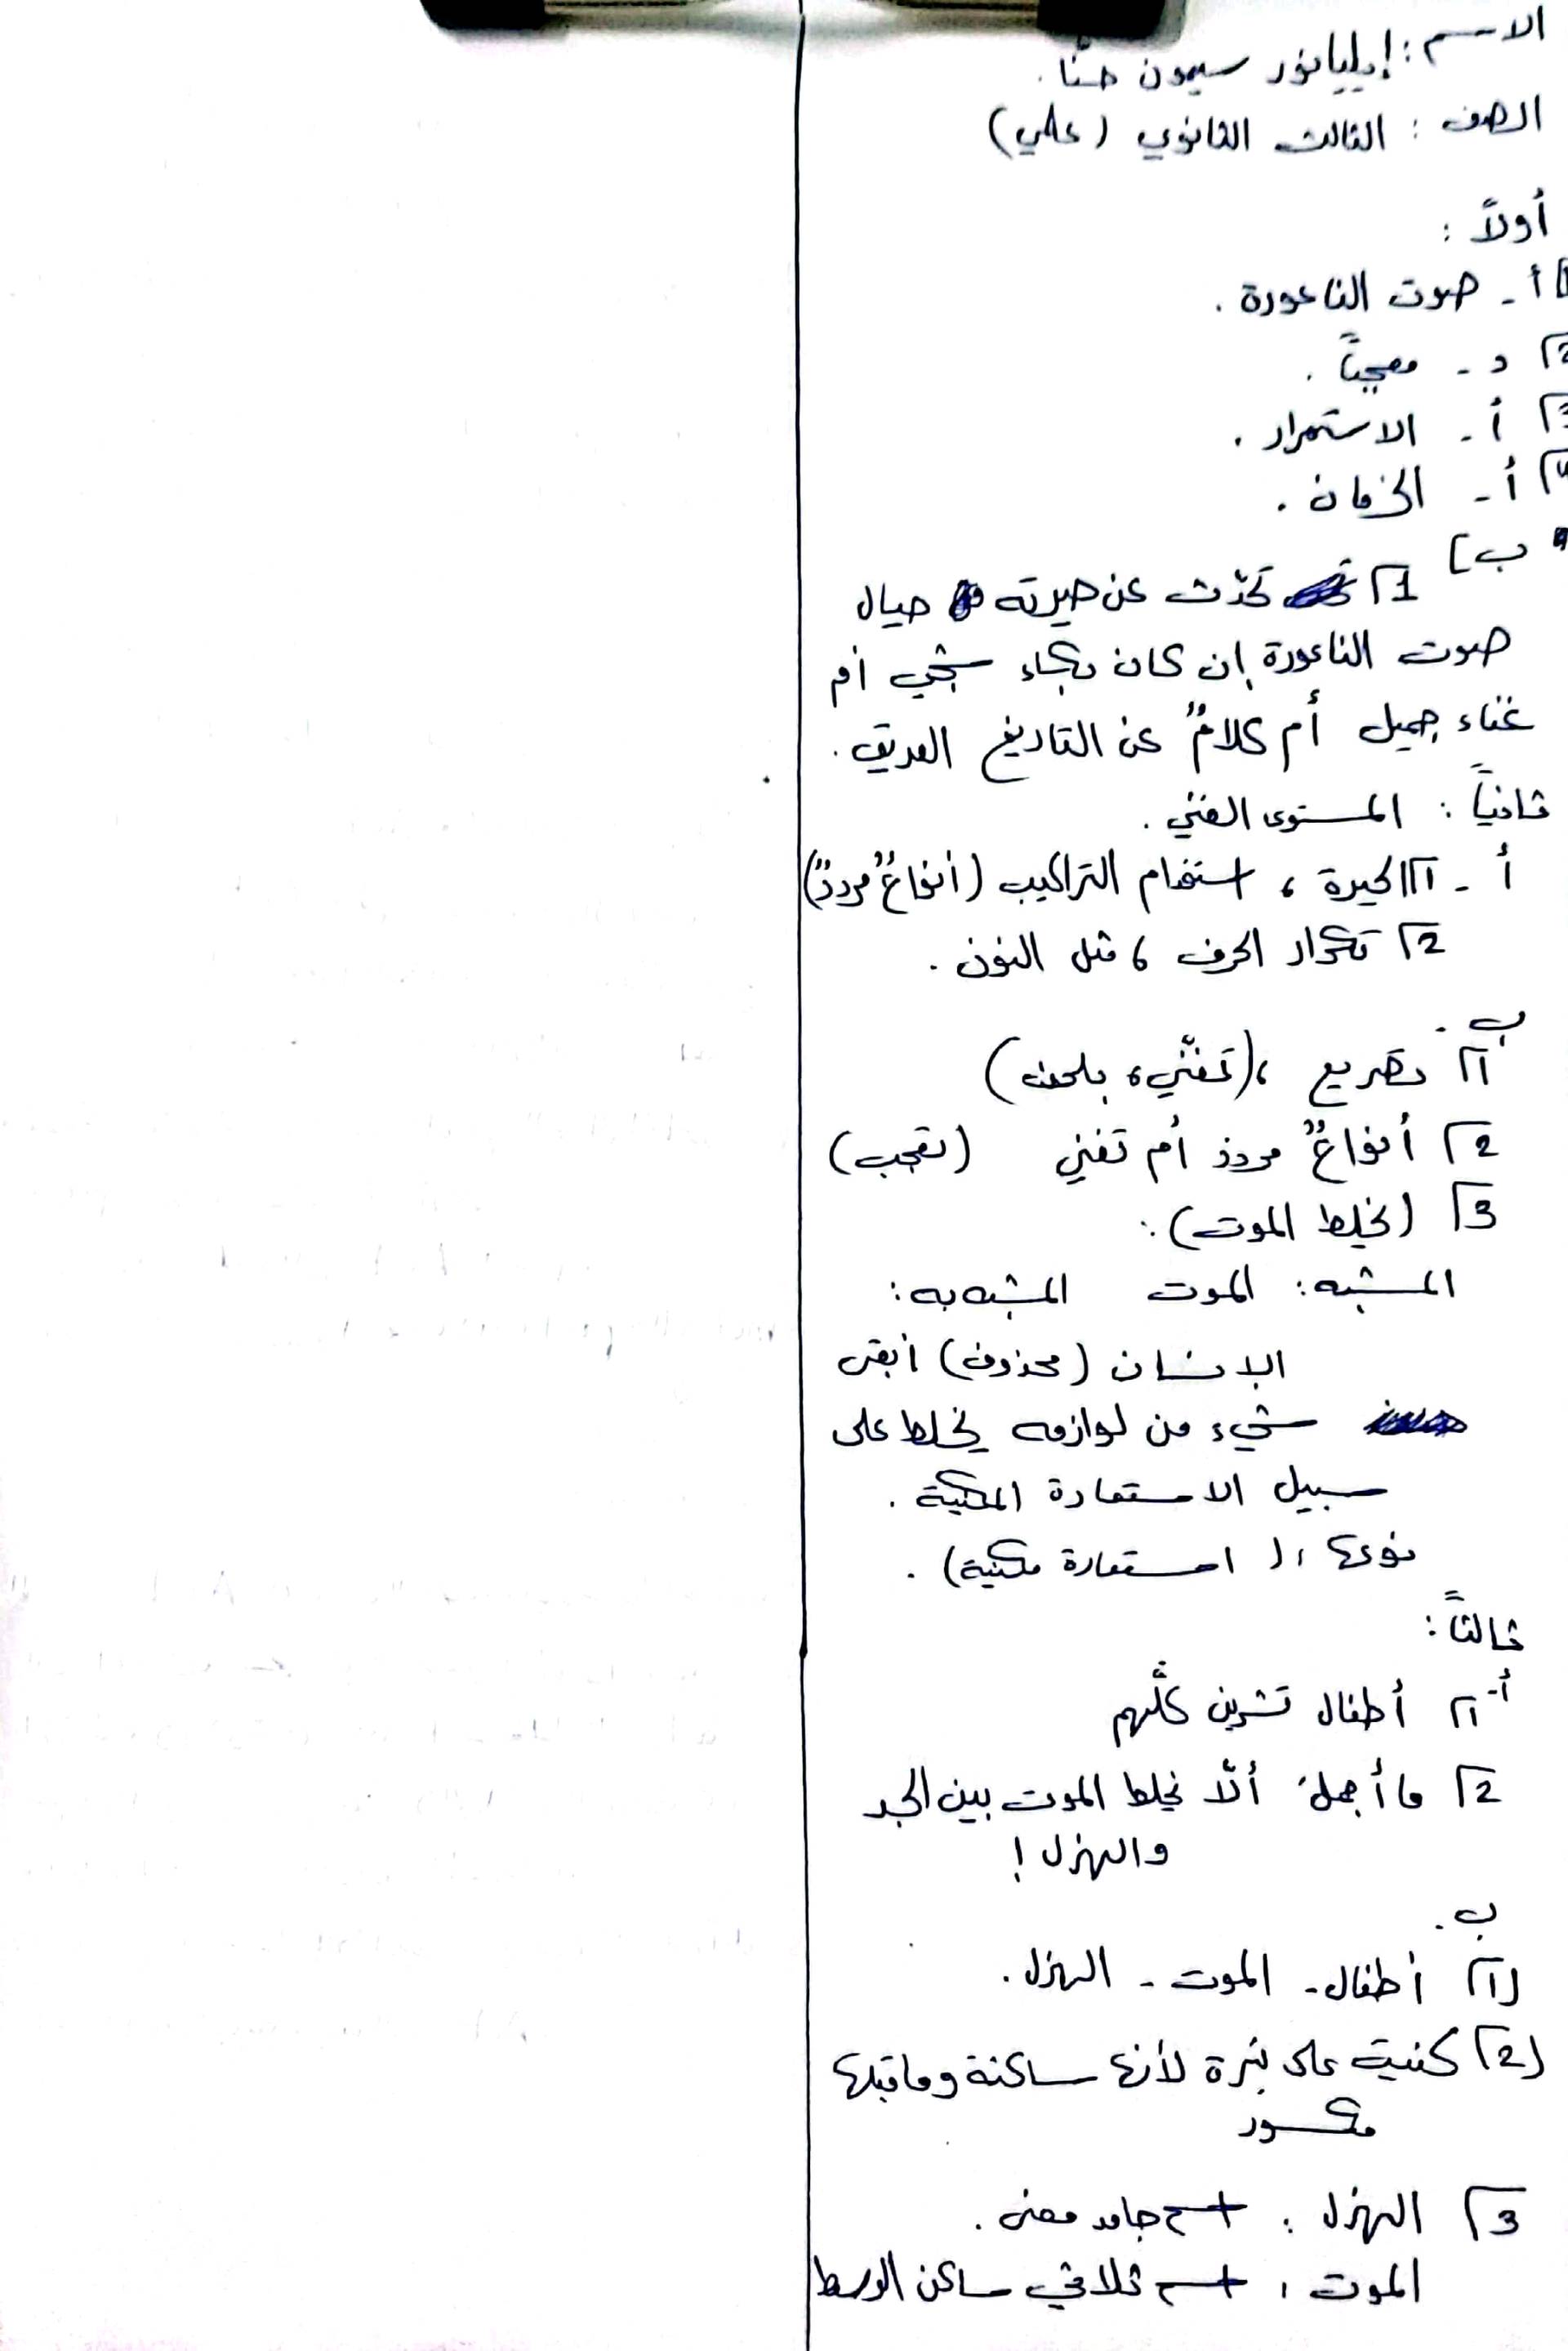 الاسم : إيليانور سيمون حنّا .
الصف : الثالث الثانوي (علمي)
أولاً :
1 أ - صوت الناعورة .
2 د - معجباً .
3 أ - الاستمرار .
4 أ - الزمان .
ب]
1 تحدّث عن حيرته حيال
صوت الناعورة إن كان بكاء شجي أم
غناء جميل أم كلامٌ عن التاريخ العريق .
ثانياً : المستوى الفني .
أ - 1 الحيرة ، استخدام التراكيب (أنواعٌ مردد)
2 تكرار الحرف ، مثل النون .
ب .
1 تصريع ، (تغنّي ، بلحن)
2 أنواعٌ مردد أم تغني (تعجب)
3 (يخلط الموت) :
المشبه : الموت المشبه به :
الإنسان (محذوف) أبقى
شيء من لوازمه يخلط على
سبيل الاستعارة المكنية .
نوعها : (استعارة مكنية) .
ثالثاً :
أ - 1 أطفال تشرين كلّهم
2 ما أجمل ألّا يخلط الموت بين الجد
والهزل !
ب .
(1 أطفال - الموت - الهزل .
(2 كتبت على نبرة لأنها ساكنة وما قبلها
مكسور
3 الهزل : اسم جامد معنى .
الموت : اسم ثلاثي ساكن الوسط